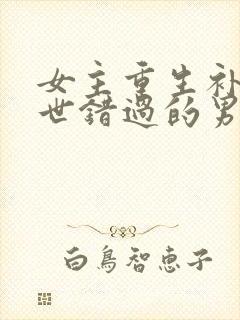 女主重生补
世错过的男
白鳥智恵子